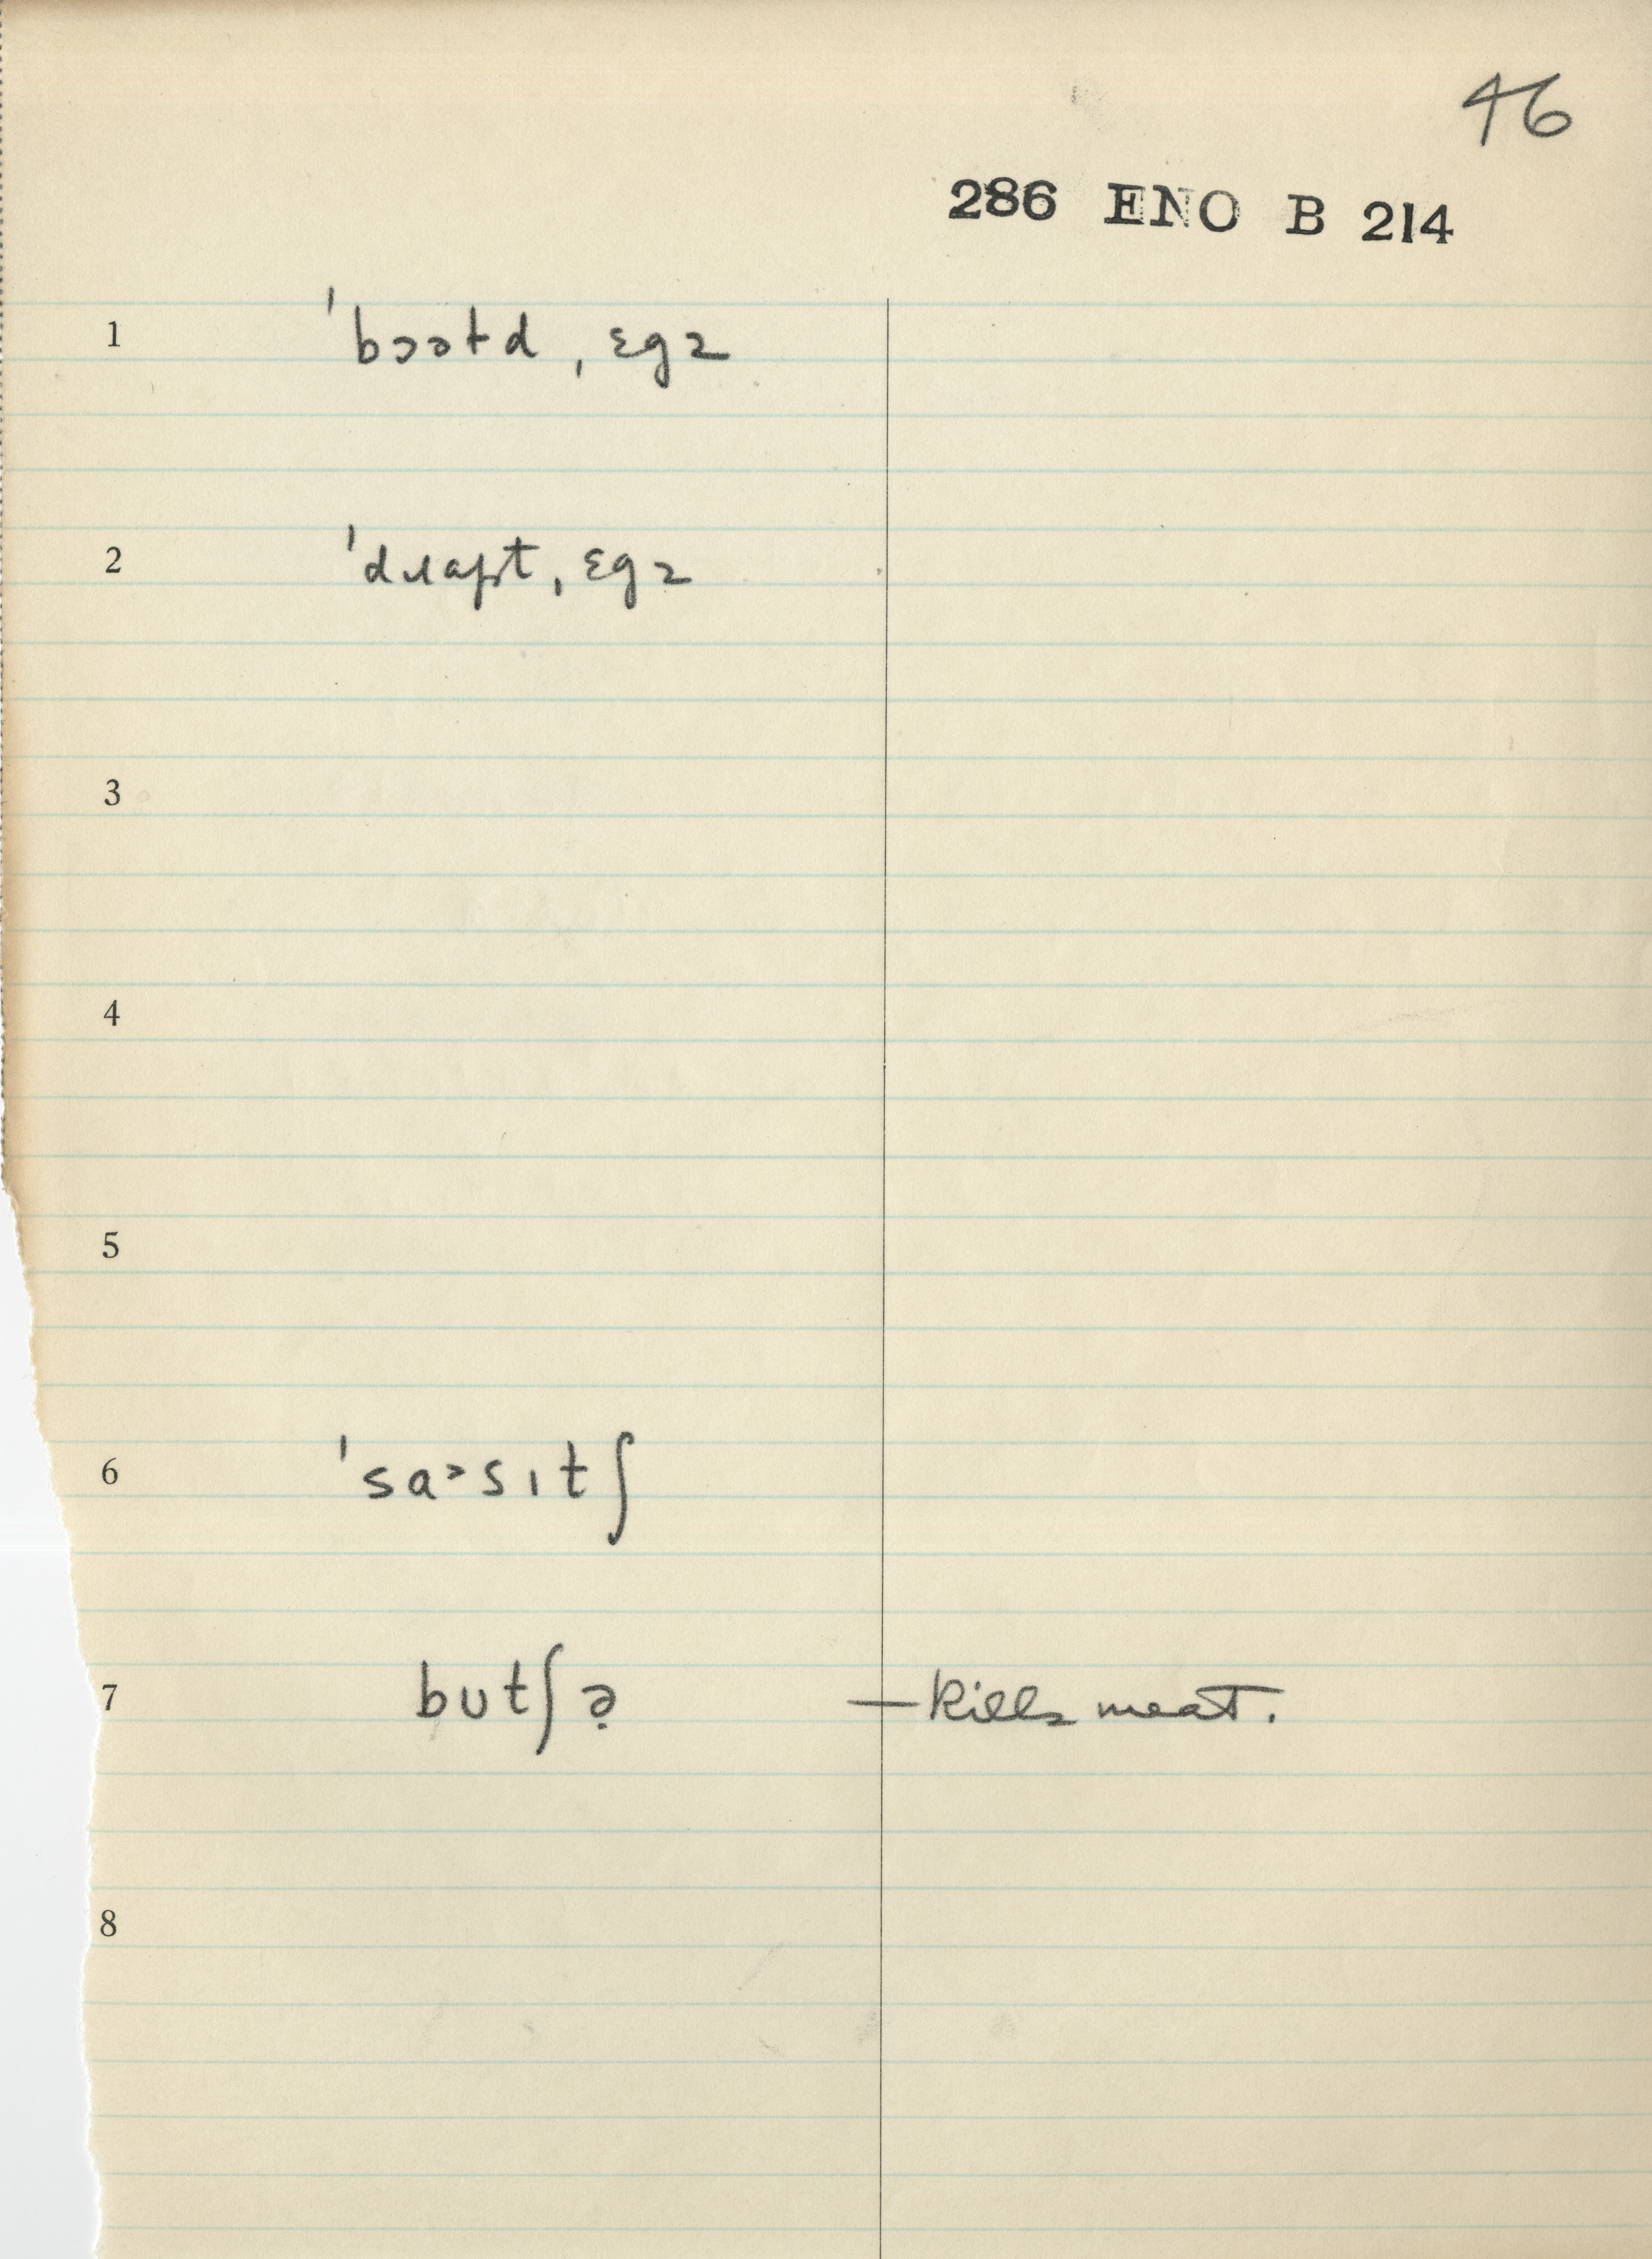 46
286 ENO B 214
1 ˈbɔəɫd ˌɛgz
2 ˈdɹapt ˌɛgz
3
4
5
6 ˈsa˃sɪtʃ
7 butʃə̣ — kills meat.
8